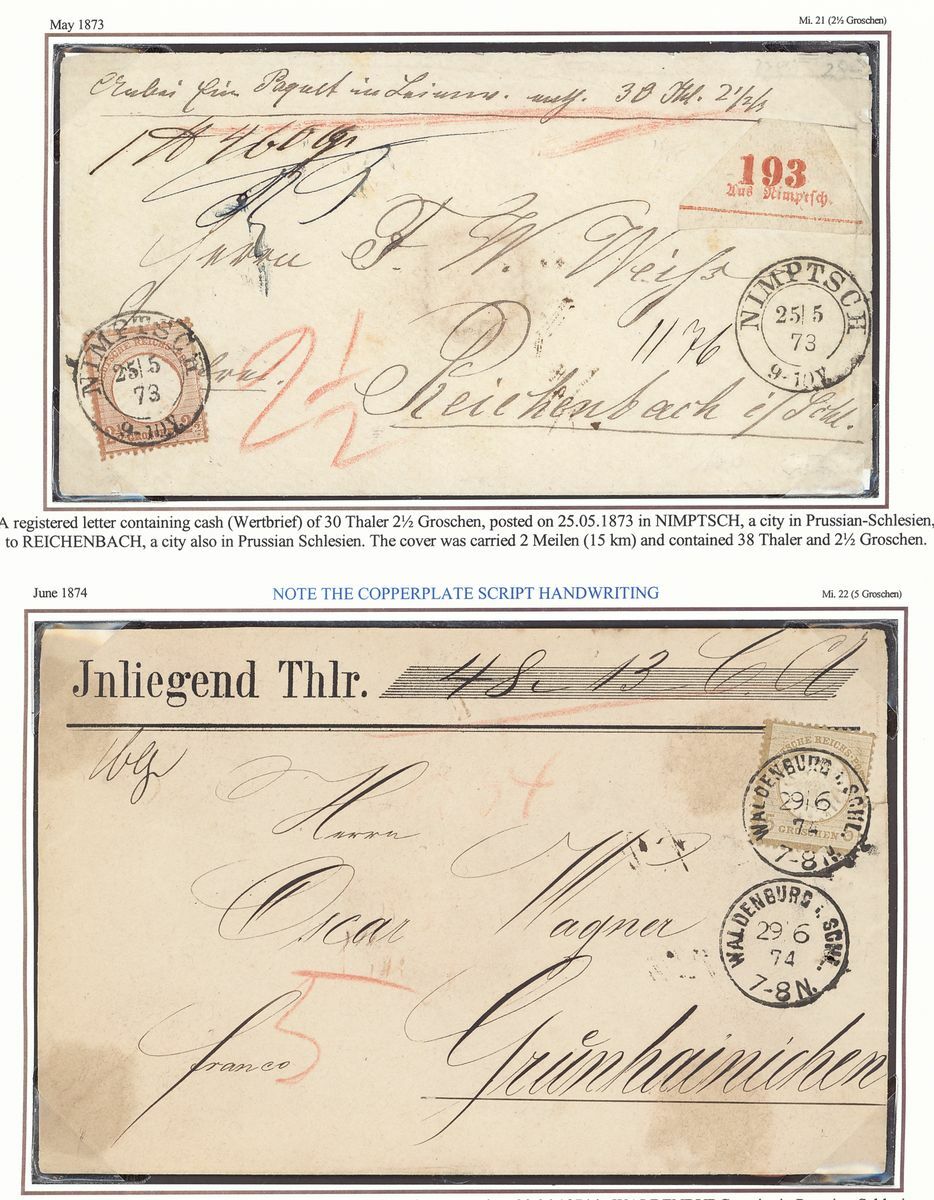 May 1873
Mi. 21 (2½ Groschen)
Anbei Ein Paquet in Leinw. enth. 30 Thl. 2 1/2
1 ℔ 460 gr
193
Aus Nimptsch.
Herrn F. W. Weiß
NIMPTSCH
25 5
73
9-10V.
1176
NIMPTSCH
25 5
73
2½
Reichenbach i/Schl.
A registered letter containing cash (Wertbrief) of 30 Thaler 2½ Groschen, posted on 25.05.1873 in NIMPTSCH, a city in Prussian-Schlesien,
to REICHENBACH, a city also in Prussian Schlesien. The cover was carried 2 Meilen (15 km) and contained 38 Thaler and 2½ Groschen.
June 1874
NOTE THE COPPERPLATE SCRIPT HANDWRITING
Mi. 22 (5 Groschen)
Jnliegend Thlr. 48. 13
Herrn
WALDENBURG i. SCHL.
29 6
74
7-8N.
GROSCHEN
Oscar Wagner
WALDENBURG i. SCHL.
29 6
74
7-8N.
5
franco
Grünhainichen